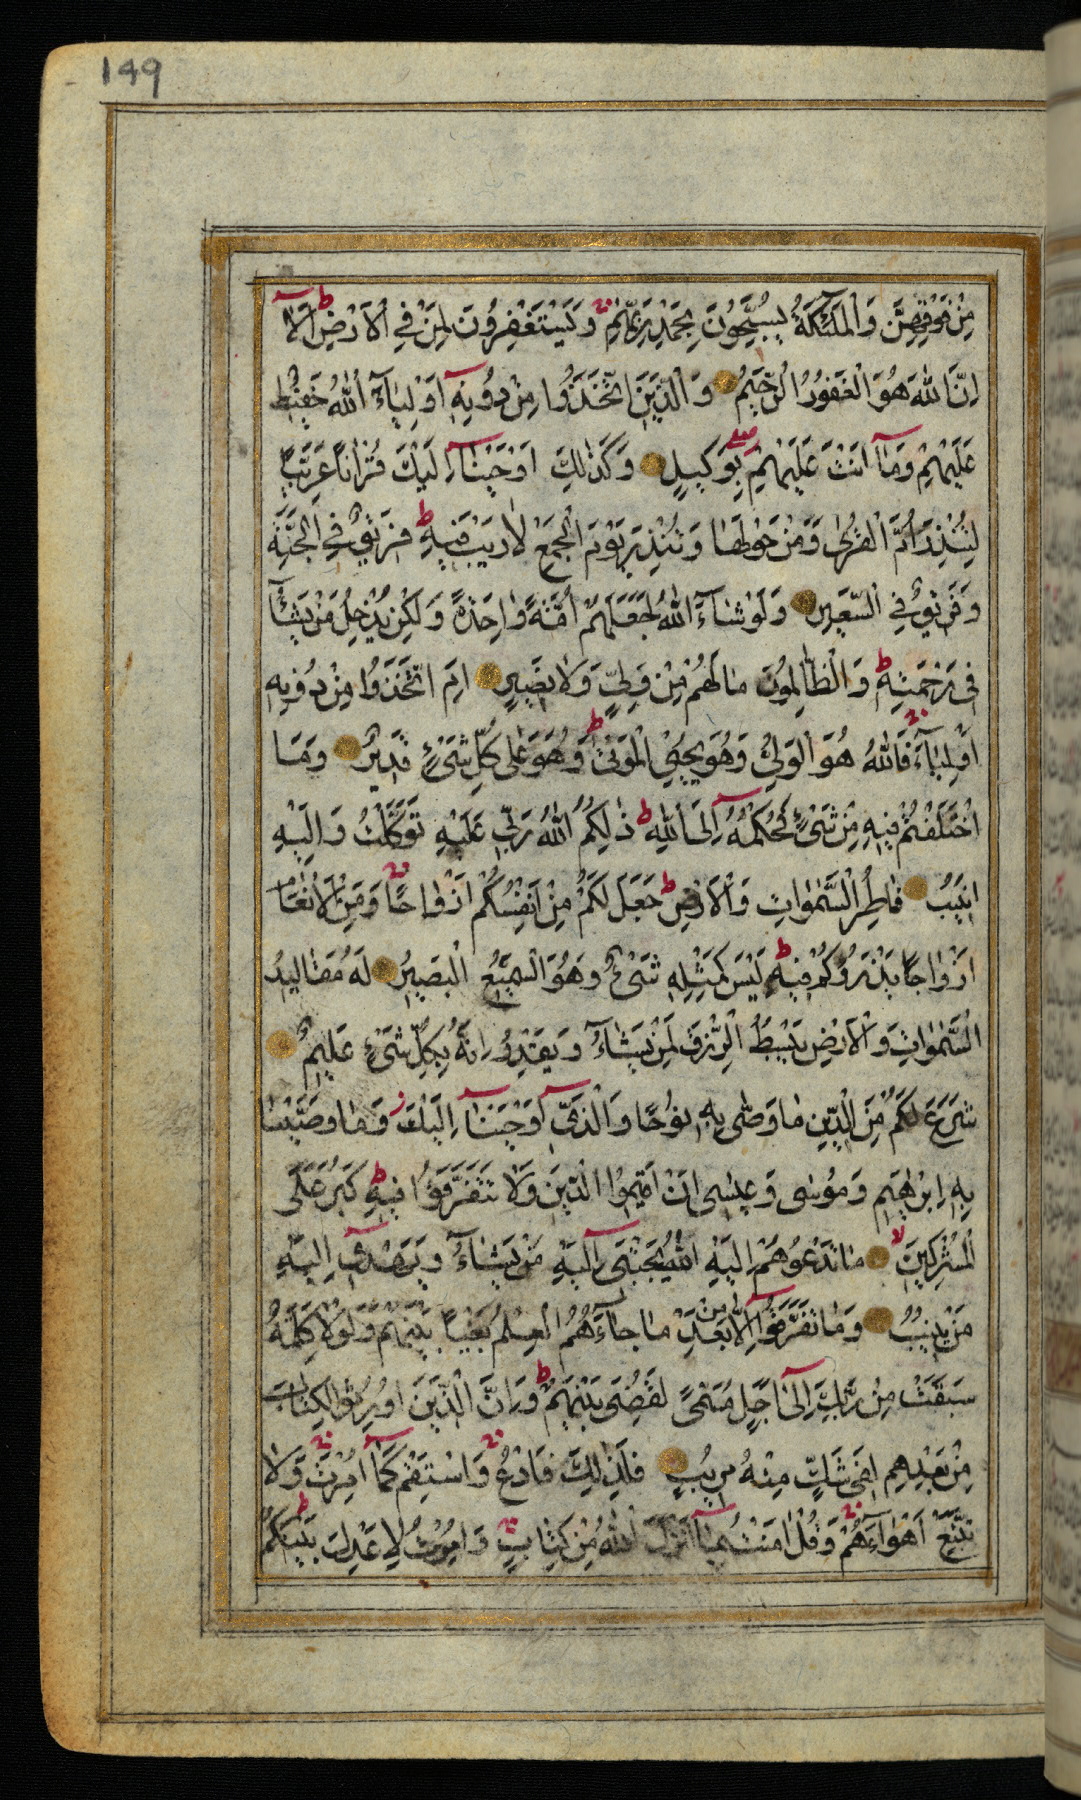 149
مِنْ فَوْقِهِنَّ وَالْمَلٰٓئِكَةُ يُسَبِّحُونَ بِحَمْدِ رَبِّهِمْ وَيَسْتَغْفِرُونَ لِمَنْ فِي الْاَرْضِ اَلَا
اِنَّ اللّٰهَ هُوَ الْغَفُورُ الرَّحِيمُ وَالَّذِينَ اتَّخَذُوا مِنْ دُونِهٖٓ اَوْلِيَآءَ اللّٰهُ حَفِيظٌ
عَلَيْهِمْ وَمَآ اَنْتَ عَلَيْهِمْ بِوَكِيلٍ وَكَذٰلِكَ اَوْحَيْنَآ اِلَيْكَ قُرْاٰنًا عَرَبِيًّا
لِتُنْذِرَ اُمَّ الْقُرٰى وَمَنْ حَوْلَهَا وَتُنْذِرَ يَوْمَ الْجَمْعِ لَا رَيْبَ فِيهِ فَرِيقٌ فِي الْجَنَّةِ
وَفَرِيقٌ فِي السَّعِيرِ وَلَوْ شَآءَ اللّٰهُ لَجَعَلَهُمْ اُمَّةً وَاحِدَةً وَلٰكِنْ يُدْخِلُ مَنْ يَشَآءُ
فِي رَحْمَتِهِ وَالظَّالِمُونَ مَا لَهُمْ مِنْ وَلِيٍّ وَلَا نَصِيرٍ اَمِ اتَّخَذُوا مِنْ دُونِهِ
اَوْلِيَآءَ فَاللّٰهُ هُوَ الْوَلِيُّ وَهُوَ يُحْيِي الْمَوْتٰى وَهُوَ عَلٰى كُلِّ شَيْءٍ قَدِيرٌ وَمَا
اخْتَلَفْتُمْ فِيهِ مِنْ شَيْءٍ فَحُكْمُهُٓ اِلَى اللّٰهِ ذٰلِكُمُ اللّٰهُ رَبِّي عَلَيْهِ تَوَكَّلْتُ وَاِلَيْهِ
اُنِيبُ فَاطِرُ السَّمٰوَاتِ وَالْاَرْضِ جَعَلَ لَكُمْ مِنْ اَنْفُسِكُمْ اَزْوَاجًا وَمِنَ الْاَنْعَامِ
اَزْوَاجًا يَذْرَؤُكُمْ فِيهِ لَيْسَ كَمِثْلِهِ شَيْءٌ وَهُوَ السَّمِيعُ الْبَصِيرُ لَهُ مَقَالِيدُ
السَّمٰوَاتِ وَالْاَرْضِ يَبْسُطُ الرِّزْقَ لِمَنْ يَشَآءُ وَيَقْدِرُ اِنَّهُ بِكُلِّ شَيْءٍ عَلِيمٌ
شَرَعَ لَكُمْ مِنَ الدِّينِ مَا وَصّٰى بِهِ نُوحًا وَالَّذِيٓ اَوْحَيْنَآ اِلَيْكَ وَمَا وَصَّيْنَا
بِهِٓ اِبْرٰهِيمَ وَمُوسٰى وَعِيسٰى اَنْ اَقِيمُوا الدِّينَ وَلَا تَتَفَرَّقُوا فِيهِ كَبُرَ عَلَى
الْمُشْرِكِينَ مَا تَدْعُوهُمْ اِلَيْهِ اَللّٰهُ يَجْتَبِيٓ اِلَيْهِ مَنْ يَشَآءُ وَيَهْدِيٓ اِلَيْهِ
مَنْ يُنِيبُ وَمَا تَفَرَّقُوٓا اِلَّا مِنْ بَعْدِ مَا جَآءَهُمُ الْعِلْمُ بَغْيًا بَيْنَهُمْ وَلَوْلَا كَلِمَةٌ
سَبَقَتْ مِنْ رَبِّكَ اِلٰٓى اَجَلٍ مُسَمًّى لَقُضِيَ بَيْنَهُمْ وَاِنَّ الَّذِينَ اُورِثُوا الْكِتَابَ
مِنْ بَعْدِهِمْ لَفِي شَكٍّ مِنْهُ مُرِيبٍ فَلِذٰلِكَ فَادْعُ وَاسْتَقِمْ كَمَآ اُمِرْتَ وَلَا
تَتَّبِعْ اَهْوَآءَهُمْ وَقُلْ اٰمَنْتُ بِمَآ اَنْزَلَ اللّٰهُ مِنْ كِتَابٍ وَاُمِرْتُ لِاَعْدِلَ بَيْنَكُمْ